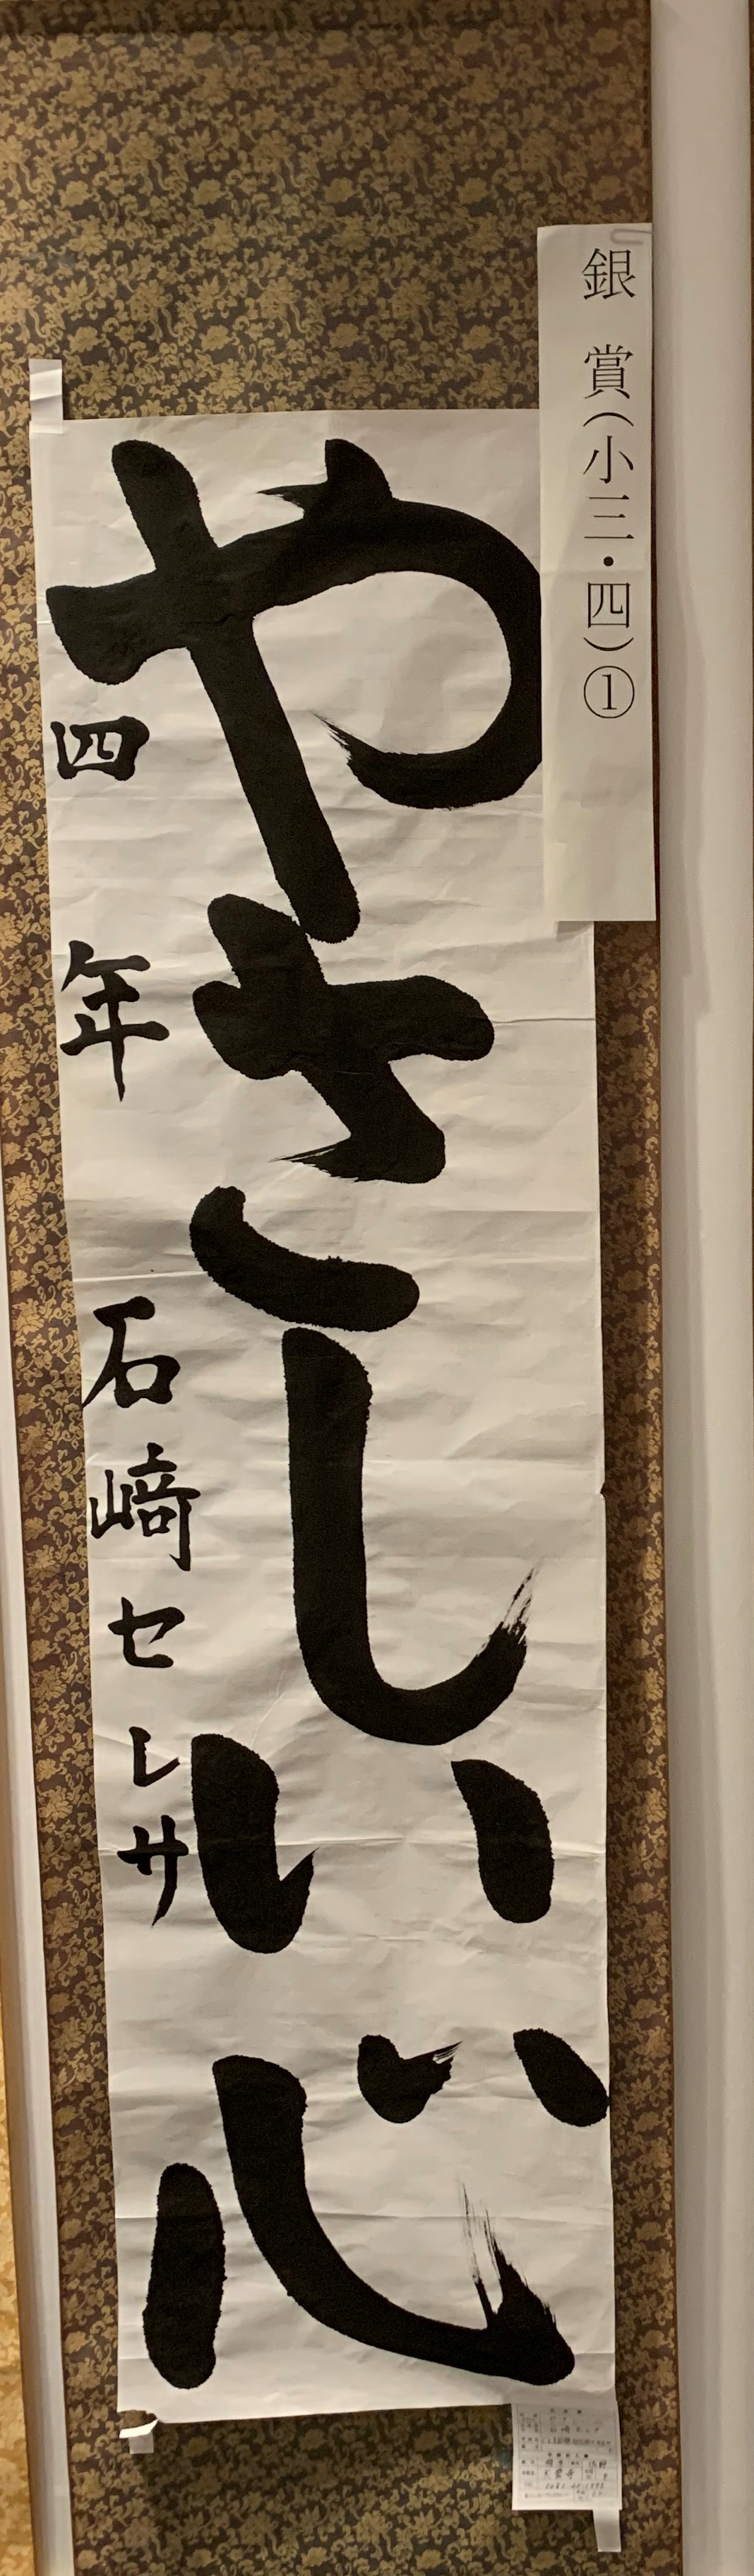 銀賞(小三・四)①
やさしい心
四年 石﨑セレサ